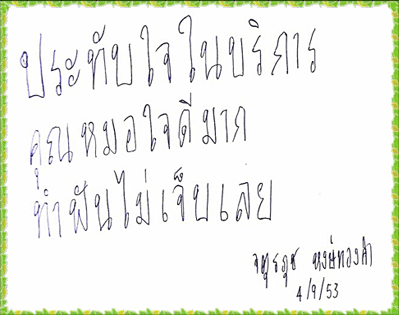 ประทับใจในบริการ
คุณหมอใจดีมาก
ทำฟันไม่เจ็บเลย
หงษ์ทองคำ
4/9/53